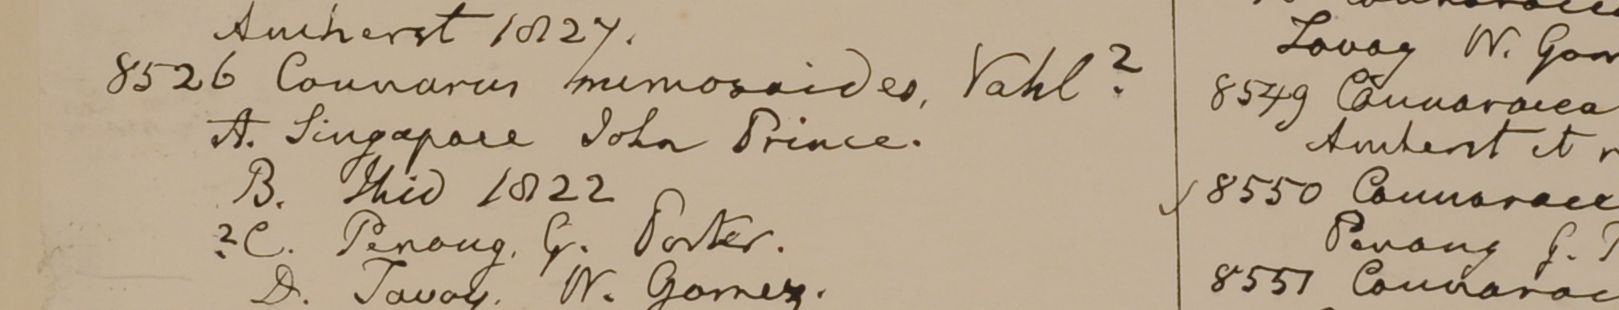 Amherst 1827.
8526 Connarus mimosoides, Vahl?
A. Singapore John Prince.
B. Ibid 1822
?C. Penang. G. Porter.
D. Tavoy. W. Gomez.
Tavoy W. Gom
8549 Connaracea
Amherst et
8550 Connaracea
Penang G. P
8551 Connarac